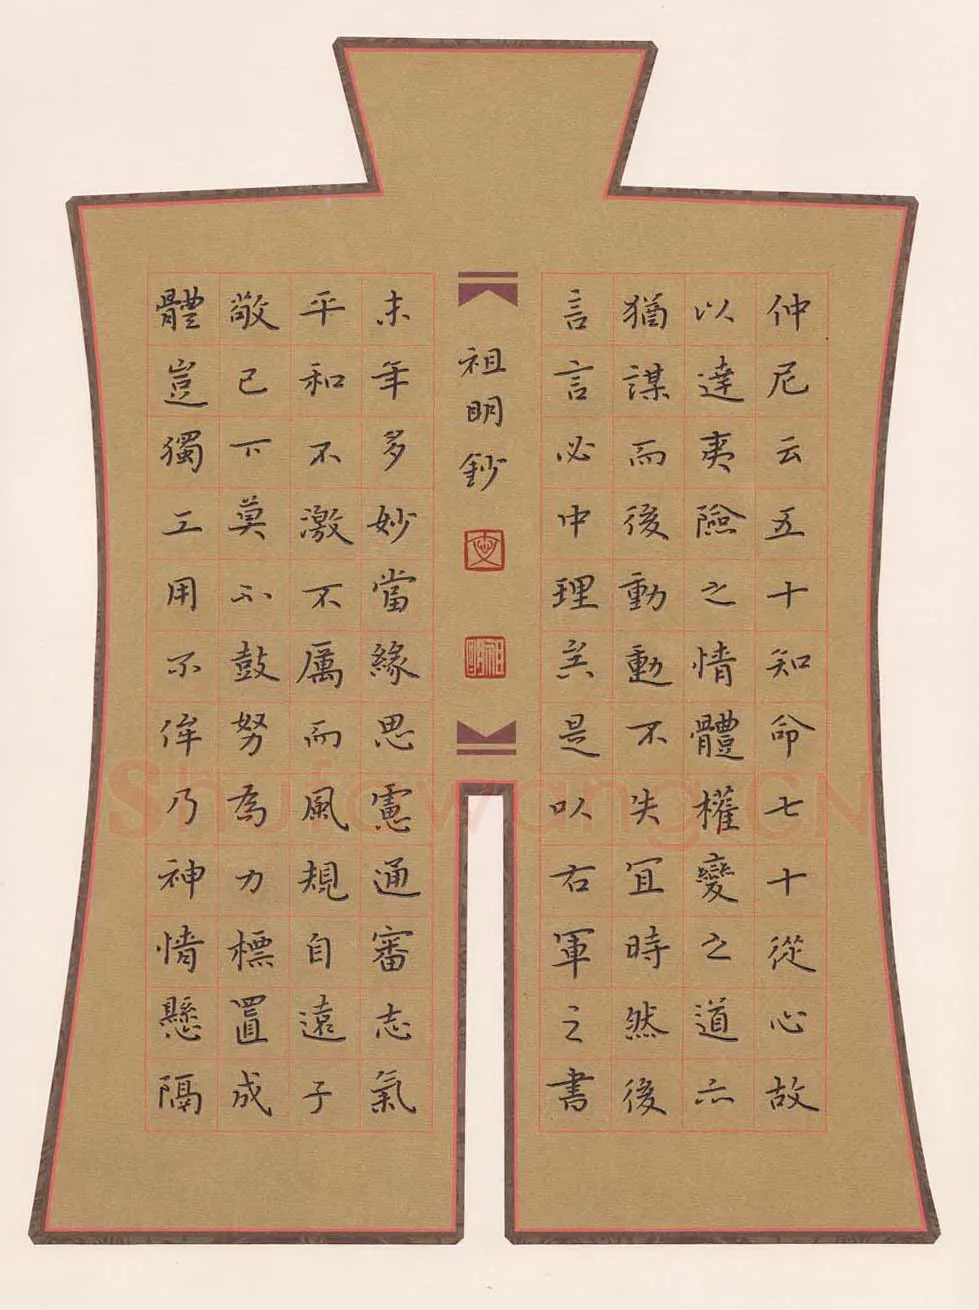 仲尼云五十知命七十從心故
以達夷險之情體權變之道亦
猶謀而後動動不失宜時然後
言言必中理矣是以右軍之書
祖明鈔
祖明
末年多妙當緣思慮通審志氣
平和不激不厲而風規自遠子
敬已下莫不鼓努為力標置成
體豈獨工用不侔乃神情懸隔
Shufawang.CN